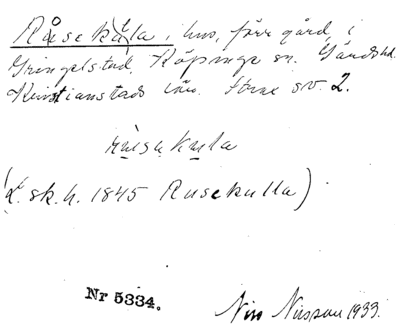 Råsekula, hus, förr gård, i
Gringelstad, Köpinge sn. Gärdshd.
Kristianstads län. Förse sv. 2.
rusakula
(L. sk. h. 1845 Rusekulla)
Nr 5334. Nils Nilsson 1933.